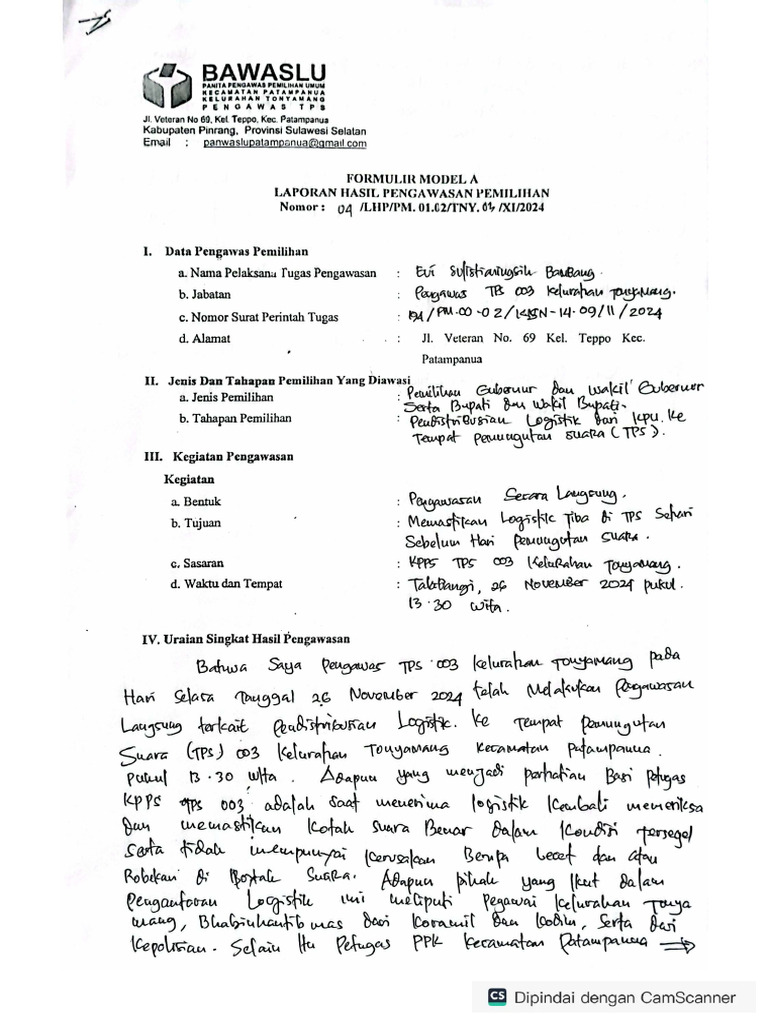 BAWASLU
PANITIA PENGAWAS PEMILIHAN UMUM
KECAMATAN PATAMPANUA
KELURAHAN TONYAMANG
PENGAWAS TPS
Jl. Veteran No 69, Kel. Teppo, Kec. Patampanua
Kabupaten Pinrang, Provinsi Sulawesi Selatan
Email : panwaslupatampanua@gmail.com
FORMULIR MODEL A
LAPORAN HASIL PENGAWASAN PEMILIHAN
Nomor : 04 /LHP/PM. 01.02/TNY. 03 /XI/2024
I. Data Pengawas Pemilihan
a. Nama Pelaksana Tugas Pengawasan : Evi Sulistianingsih Bambang.
b. Jabatan : Pengawas TPS 003 Kelurahan Tonyamang.
c. Nomor Surat Perintah Tugas : /PM.00.02/K.SN-14.09/11/2024
d. Alamat : Jl. Veteran No. 69 Kel. Teppo Kec.
Patampanua
II. Jenis Dan Tahapan Pemilihan Yang Diawasi
a. Jenis Pemilihan : Pemilihan Gubernur dan Wakil Gubernur
Serta Bupati dan Wakil Bupati.
b. Tahapan Pemilihan : Pendistribusian Logistik dari KPU ke
Tempat Pemungutan Suara (TPS).
III. Kegiatan Pengawasan
Kegiatan
a. Bentuk : Pengawasan Secara Langsung.
b. Tujuan : Memastikan Logistik Tiba di TPS Sehari
Sebelum Hari Pemungutan Suara.
c. Sasaran : KPPS TPS 003 Kelurahan Tonyamang.
d. Waktu dan Tempat : Talabangi, 26 November 2024 pukul.
13.30 Wita.
IV. Uraian Singkat Hasil Pengawasan
Bahwa Saya Pengawas TPS 003 Kelurahan Tonyamang pada
Hari Selasa Tanggal 26 November 2024 telah Melakukan Pengawasan
Langsung terkait Pendistribusian Logistik. Ke Tempat Pemungutan
Suara (TPS) 003 Kelurahan Tonyamang Kecamatan Patampanua.
Pukul 13.30 Wita. Adapun yang menjadi perhatian Bagi Petugas
KPPS TPS 003 adalah saat menerima logistik Kembali memeriksa
dan memastikan Kotak suara Benar dalam Kondisi Tersegel
Serta tidak mempunyai Kerusakan Berupa Lecet dan atau
Robekan di Kotak Suara. Adapun pihak yang Ikut dalam
Pengantaran Logistik ini meliputi Pegawai Kelurahan Tonya
mang, Bhabinkantibmas dari Koramil dan Kodim, Serta dari
Kepolisian. Selain Itu Petugas PPK Kecamatan Patampanua →
CS Dipindai dengan CamScanner